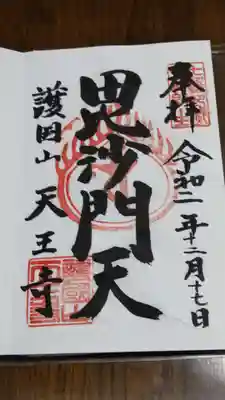 奉拝 令和二年十二月十七日
毘沙門天
護国山 天王寺